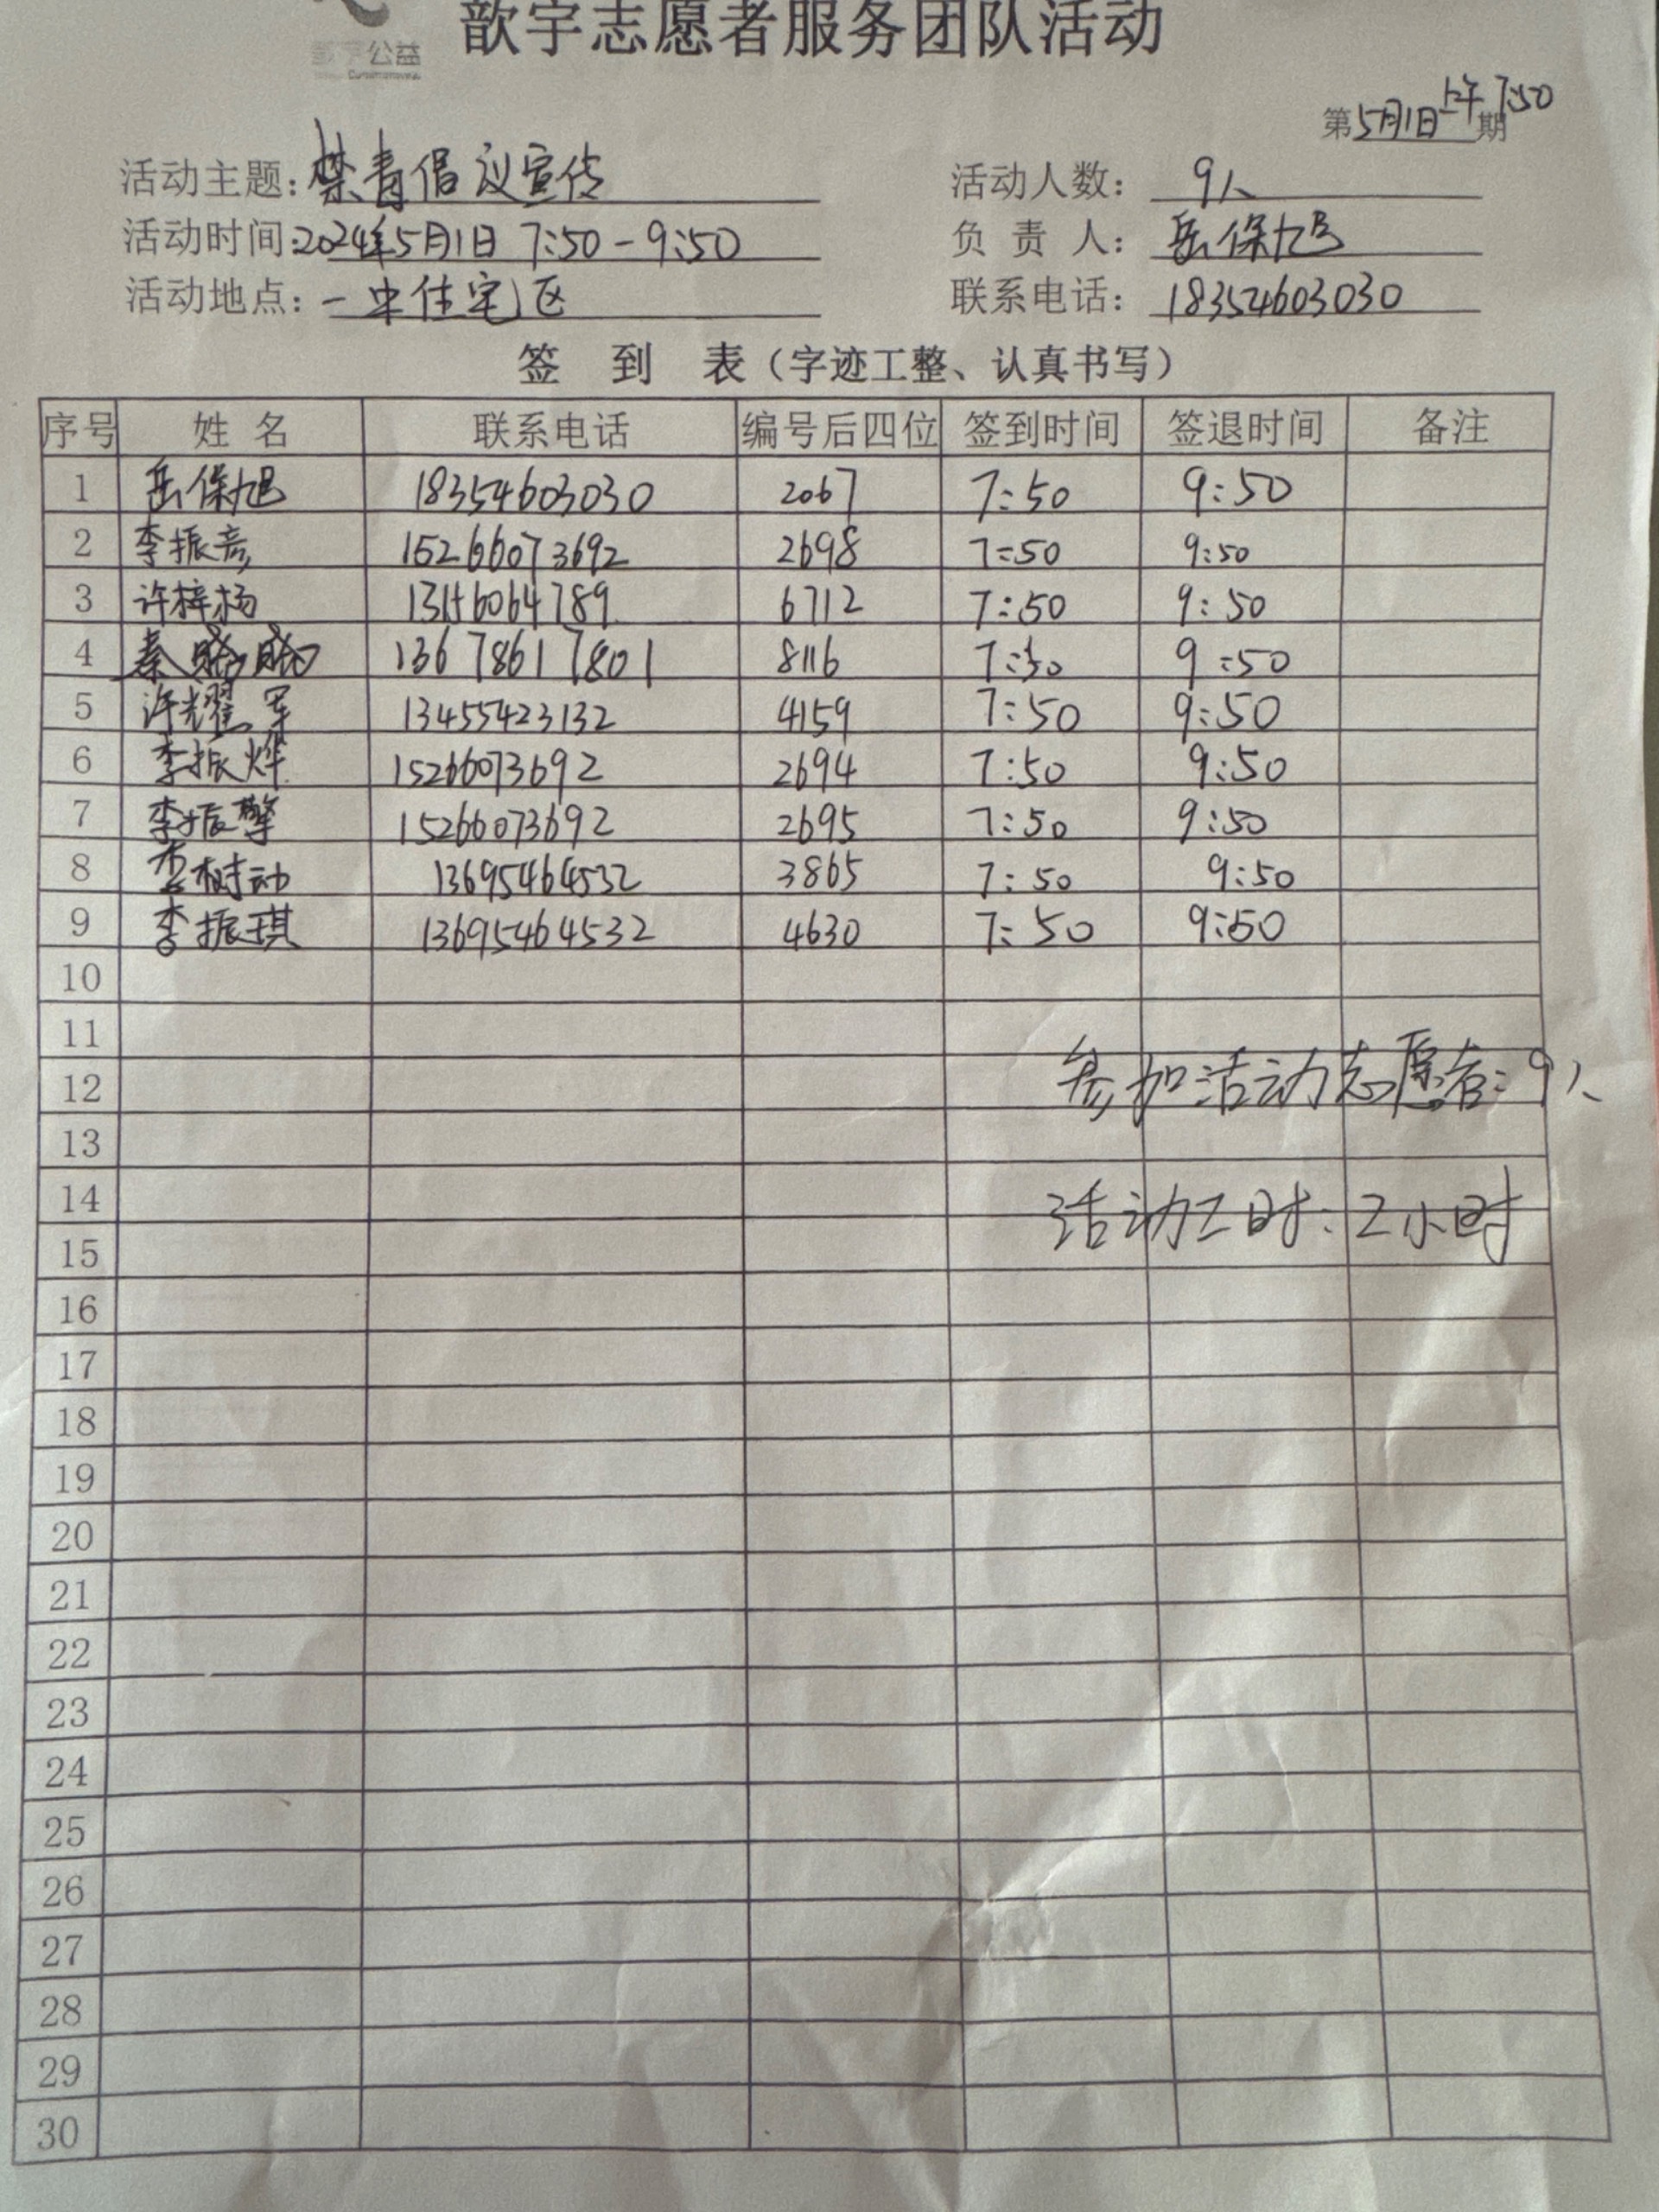 公益
歆宇志愿者服务团队活动
第5月1日上午7:50期
活动主题：禁毒倡议宣传 活动人数：9人
活动时间：2024年5月1日 7:50-9:50 负责人：岳保旭
活动地点：一中住宅区 联系电话：18354603030
签到表（字迹工整、认真书写）
序号 姓名 联系电话 编号后四位 签到时间 签退时间 备注
1 岳保旭 18354603030 2067 7:50 9:50
2 李振彦 15266073692 2698 7:50 9:50
3 许梓杨 6712 7:50 9:50
4 秦 13678617801 8116 7:50 9:50
5 许耀军 13455423132 4159 7:50 9:50
6 李振烨 15266073692 2694 7:50 9:50
7 李振擎 15266073692 2695 7:50 9:50
8 李树动 13695464532 3865 7:50 9:50
9 李振琪 13695464532 4630 7:50 9:50
10
11
12 参加活动志愿者：9人
13
14
15 活动工时：2小时
16
17
18
19
20
21
22
23
24
25
26
27
28
29
30